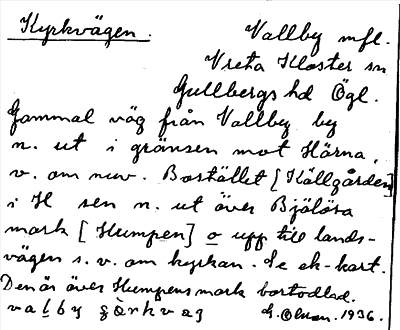 Kyrkvägen.
Vallby mfl.
Vreta Kloster sn
Gullbergs hd Ögl.
Gammal väg från Vallby by
n. ut i gränsen mot Härna,
v. om nuv. Bostället [Källgården]
i H sen n. ut över Bjölösa
mark [Humpen] o upp till lands-
vägen s. v. om kyrkan. Se ek-kart.
Den är över Humpens mark bortodlad.
valby
G. Olsson. 1936.